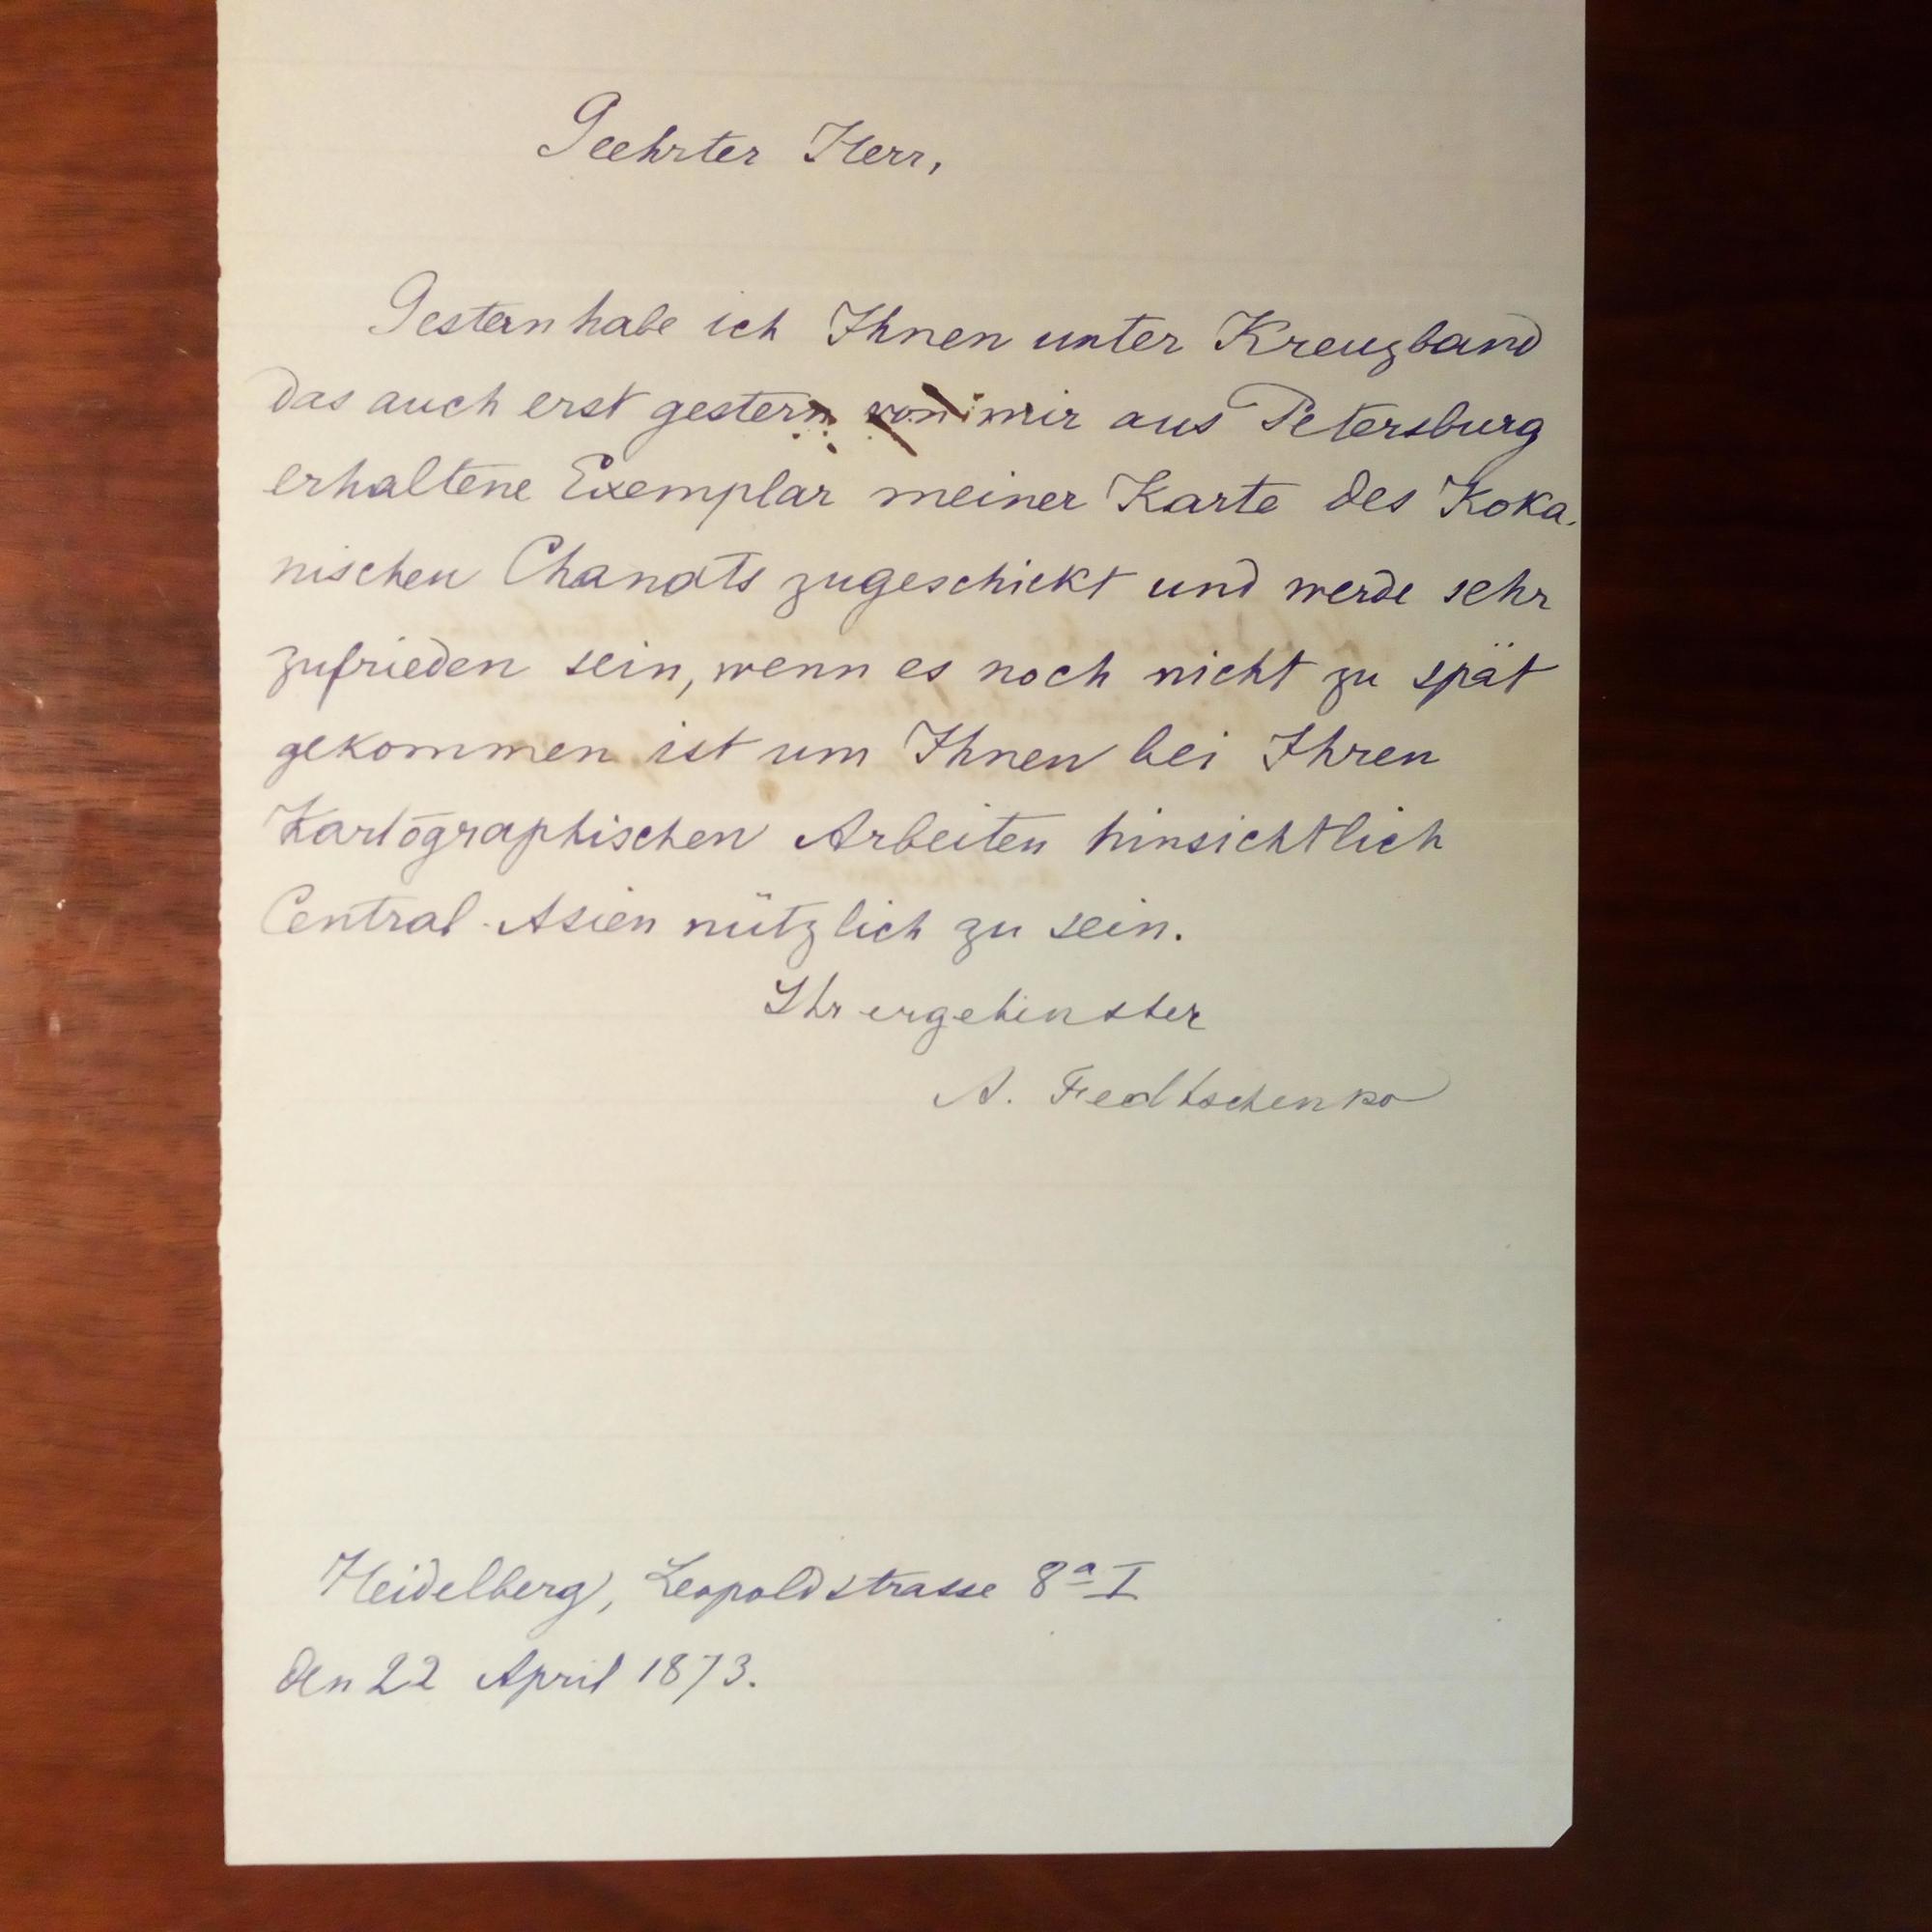 Geehrter Herr,
Gestern habe ich Ihnen unter Kreuzband
das auch erst gestern von mir aus Petersburg
erhaltene Exemplar meiner Karte des Koka-
nischen Chanats zugeschickt und werde sehr
zufrieden sein, wenn es noch nicht zu spät
gekommen ist um Ihnen bei Ihren
Kartographischen Arbeiten hinsichtlich
Central-Asien nützlich zu sein.
Ihr ergebenster
A. Fedtschenko
Heidelberg, Leopoldstrasse 8a I
den 22 April 1873.